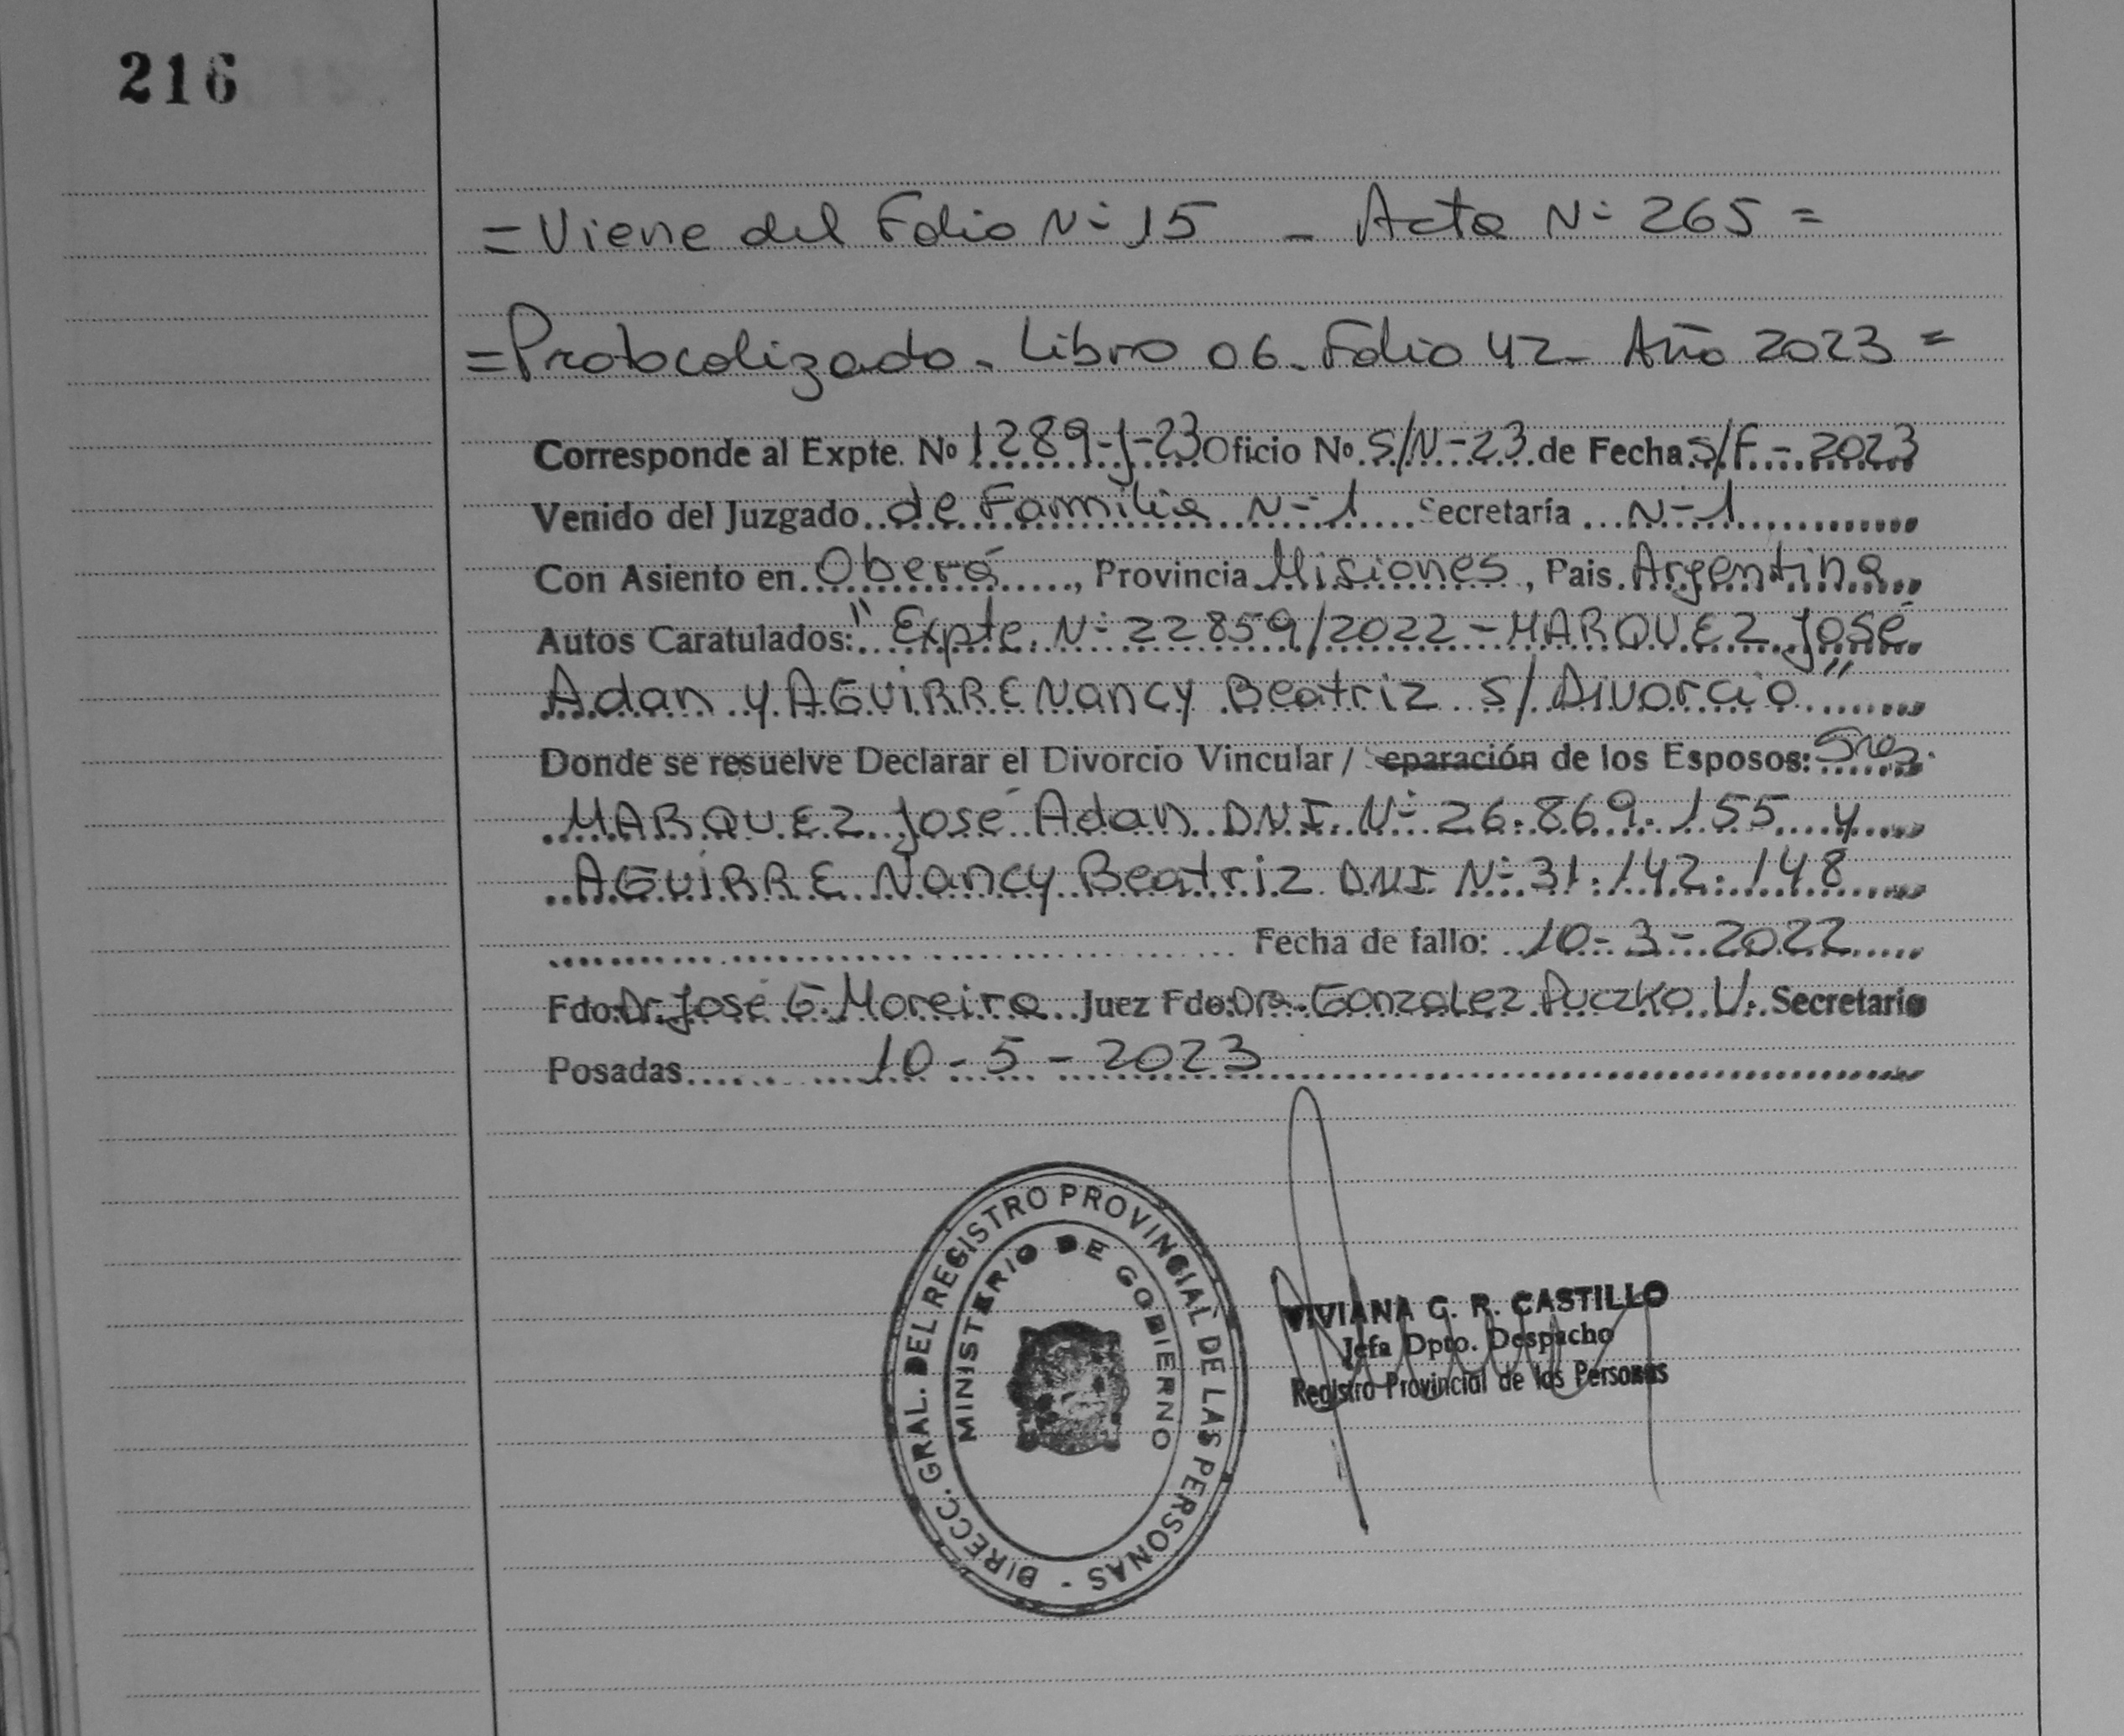 216
= Viene del Folio N- 15 - Acta N- 265 =
= Protocolizado. Libro 06. Folio 42 - Año 2023 =
Corresponde al Expte. Nº 1289-J-23 Oficio Nº S/N-23 de Fecha S/F.-2023
Venido del Juzgado de Familia N-1 Secretaría N-1
Con Asiento en Oberá, Provincia Misiones, Pais Argentina
Autos Caratulados: "Expte. N- 22859/2022 - MARQUEZ José
Adan y AGUIRRE Nancy Beatriz s/ Divorcio"
Donde se resuelve Declarar el Divorcio Vincular / eparación de los Esposos: Sres.
MARQUEZ José Adan DNI. N- 26.869.155 y
AGUIRRE Nancy Beatriz DNI N- 31.142.148
Fecha de fallo: 10-3-2022
Fdo: Dr. José G. Moreira Juez Fdo: Dra. Gonzalez Puczko V. Secretario
Posadas 10-5-2023
DIRECC. GRAL. DEL REGISTRO PROVINCIAL DE LAS PERSONAS -
MINISTERIO DE GOBIERNO
VIVIANA G. R. CASTILLO
Jefa Dpto. Despacho
Registro Provincial de las Personas